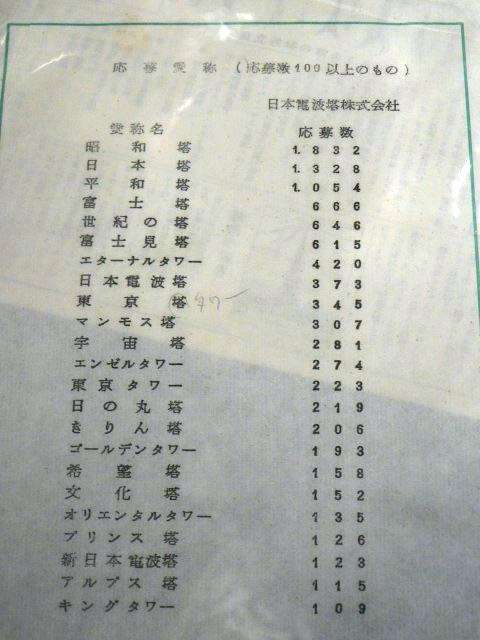 応募愛称(応募数100以上のもの)
日本電波塔株式会社
愛称名 応募数
昭和塔 1.832
日本塔 1.328
平和塔 1.054
富士塔 666
世紀の塔 646
富士見塔 615
エターナルタワー 420
日本電波塔 373
東京塔 タワー 345
マンモス塔 307
宇宙塔 281
エンゼルタワー 274
東京タワー 223
日の丸塔 219
きりん塔 206
ゴールデンタワー 193
希望塔 158
文化塔 152
オリエンタルタワー 135
プリンス塔 126
新日本電波塔 123
アルプス塔 115
キングタワー 109